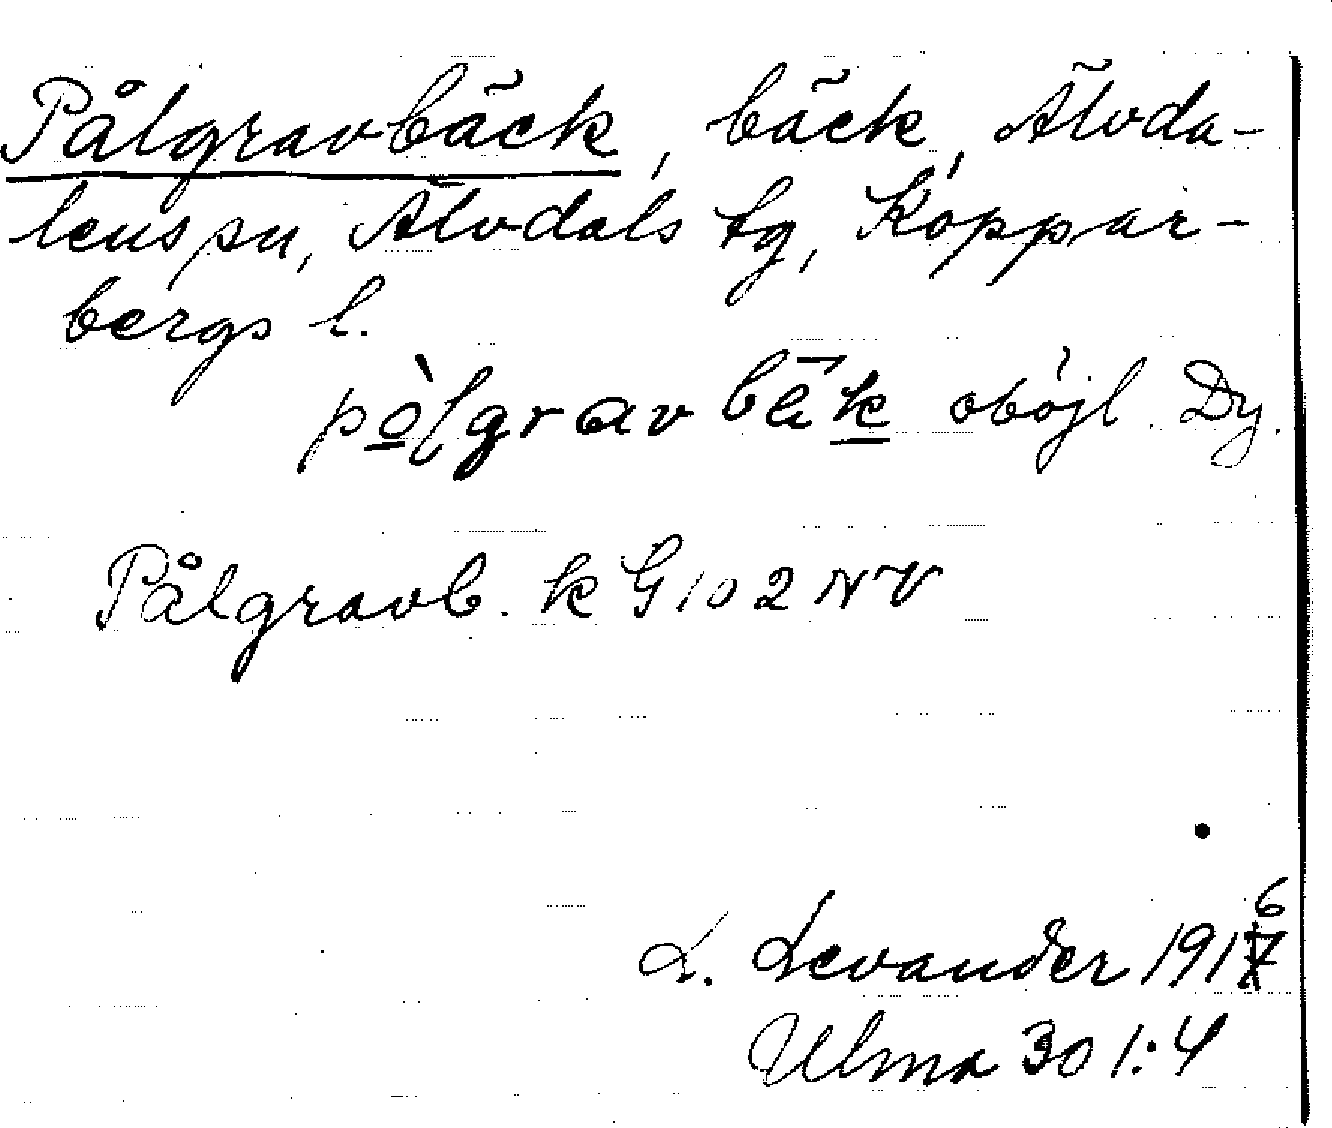 Pålgravbäck, bäck, Älvda-
lens sn, Älvdals tg, Koppar-
bergs l.
oböjl. Dy.
Pålgravb. k G 102 NV
L. Levander 1916
Ulma 301:4